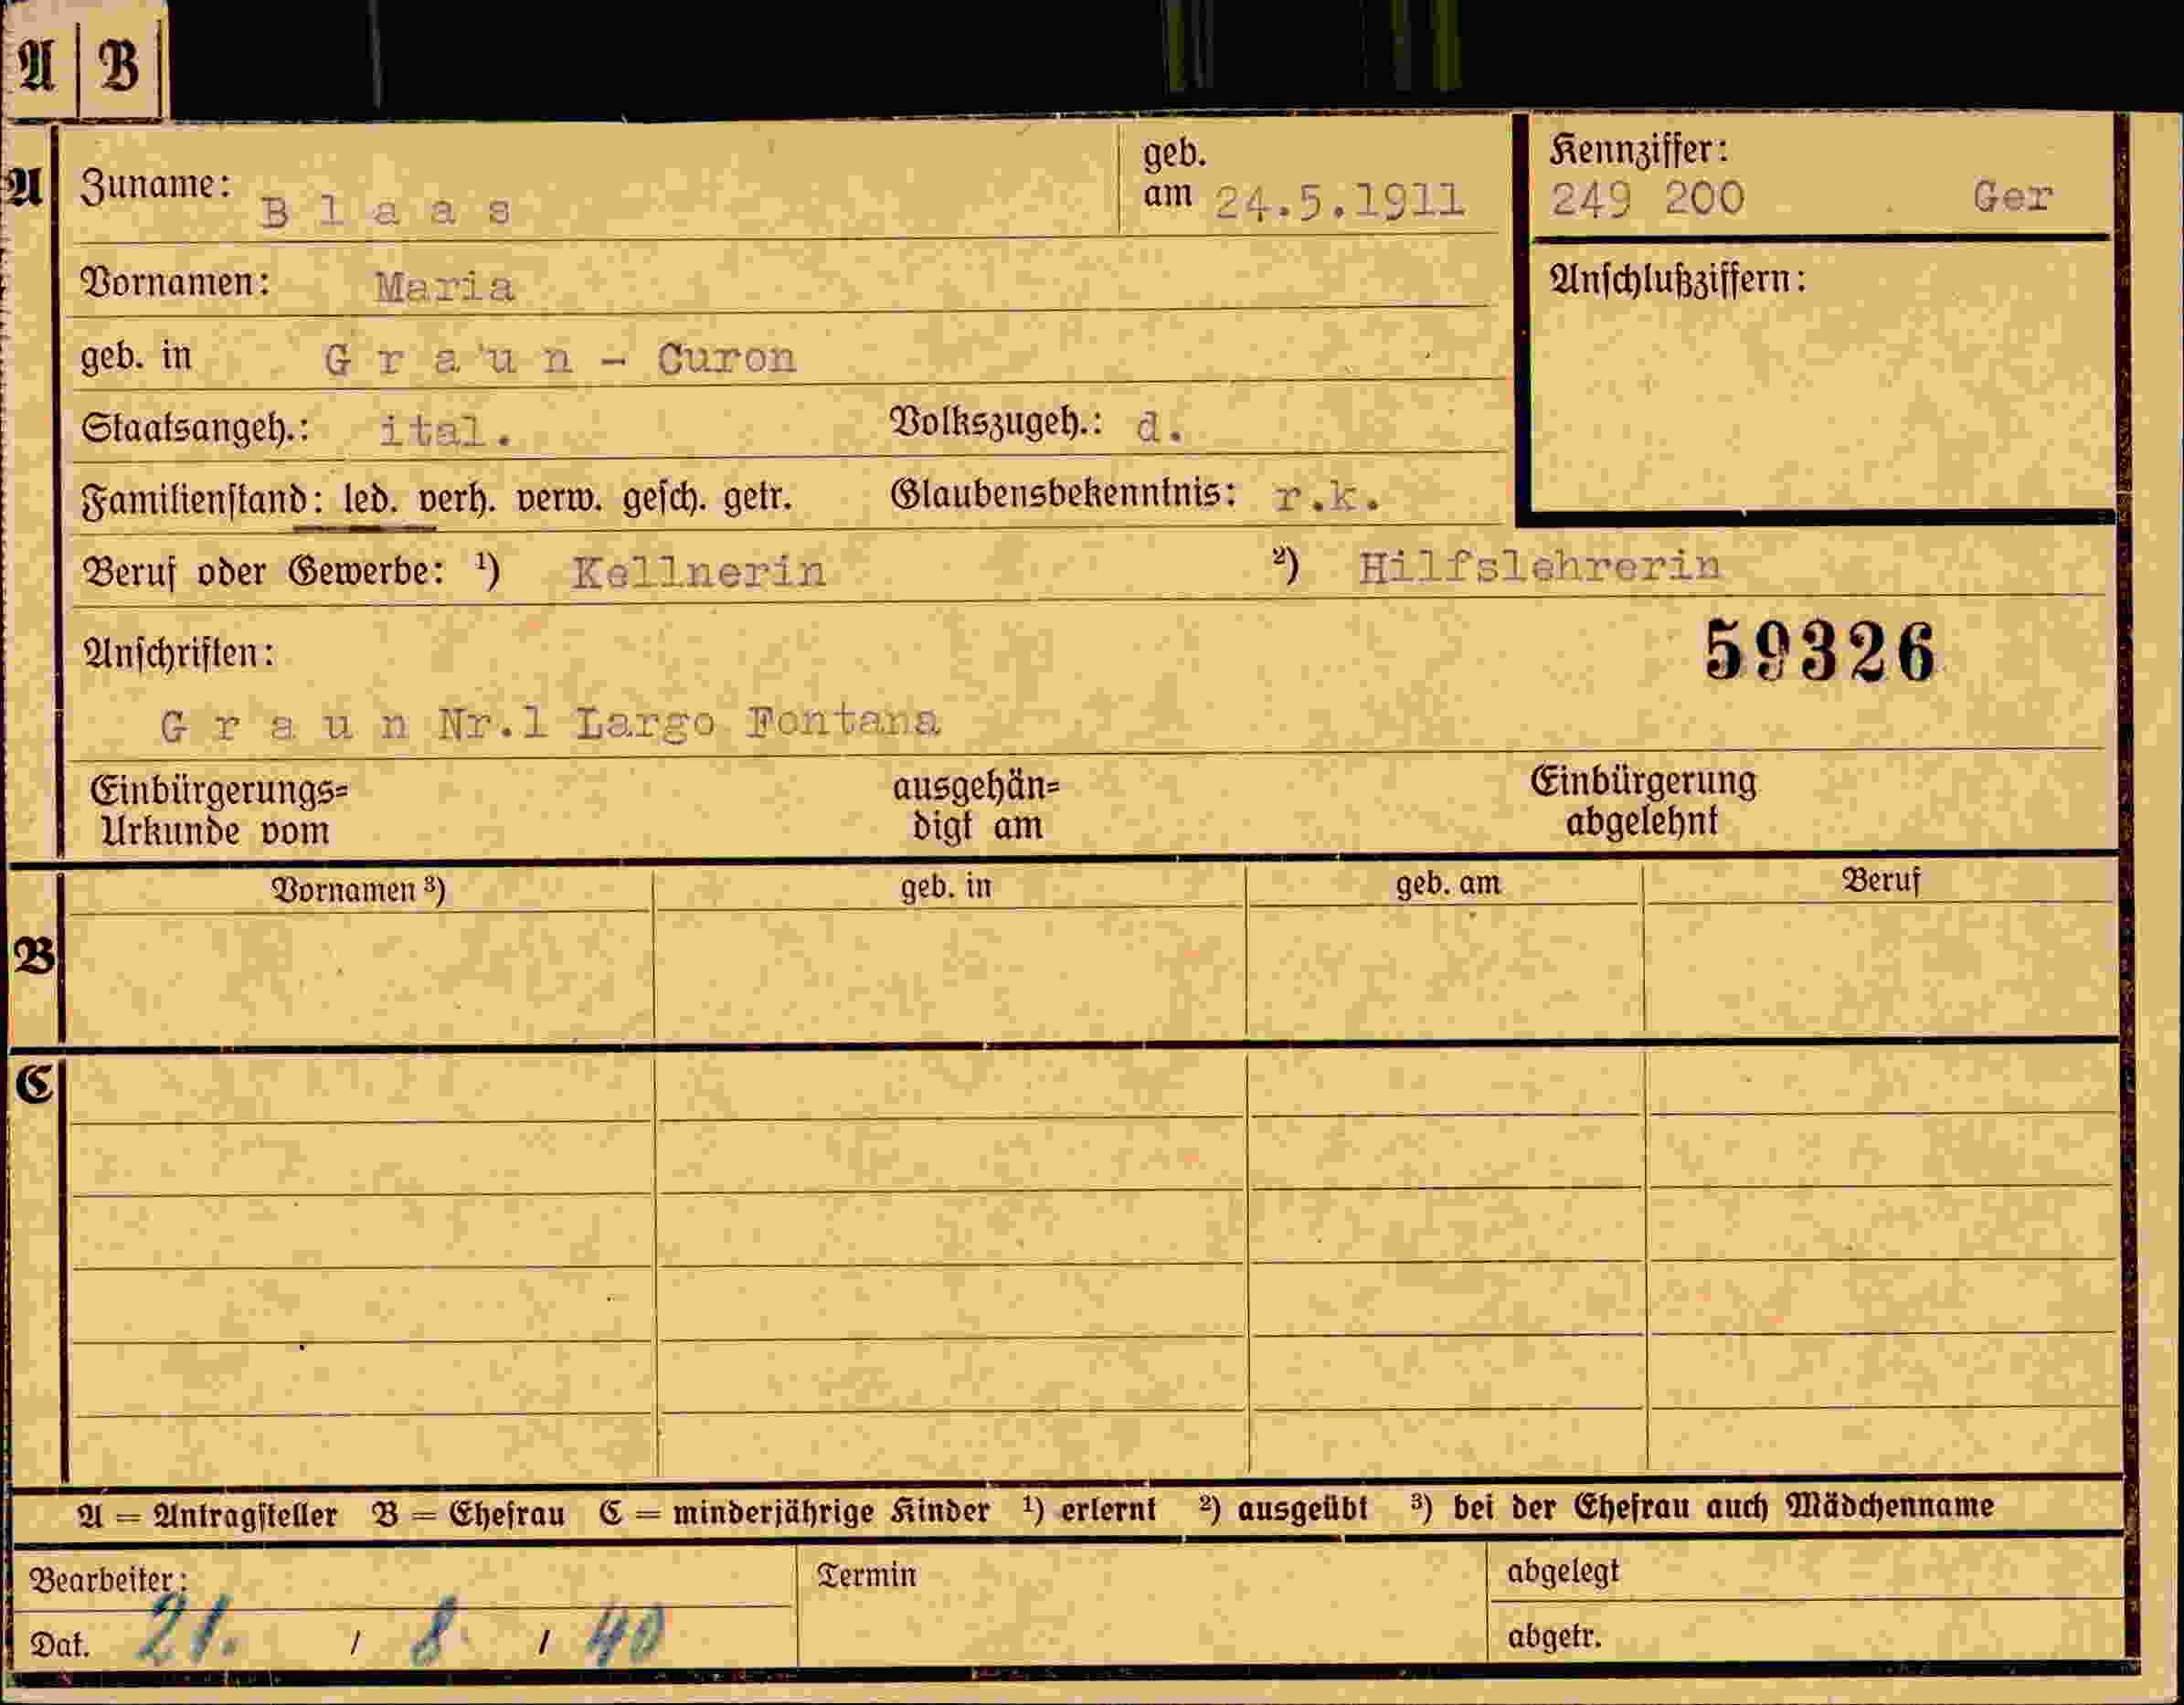 A | B
A
Zuname: B l a a s
geb. am 24.5.1911
Kennziffer:
249 200 Ger
Vornamen: Maria
Anschlußziffern:
geb. in G r a u n - Curon
Staatsangeh.: ital. Volkszugeh.: d.
Familienstand: led. verh. verw. gesch. getr. Glaubensbekenntnis: r.k.
Beruf oder Gewerbe: ¹) Kellnerin ²) Hilfslehrerin
Anschriften:
59326
G r a u n Nr.1 Largo Fontana
Einbürgerungs= ausgehän= Einbürgerung
Urkunde vom digt am abgelehnt
Vornamen ³) geb. in geb. am Beruf
B
C
A = Antragsteller B = Ehefrau C = minderjährige Kinder ¹) erlernt ²) ausgeübt ³) bei der Ehefrau auch Mädchenname
Bearbeiter: Termin abgelegt
Dat. 21. / 8. / 40 abgetr.